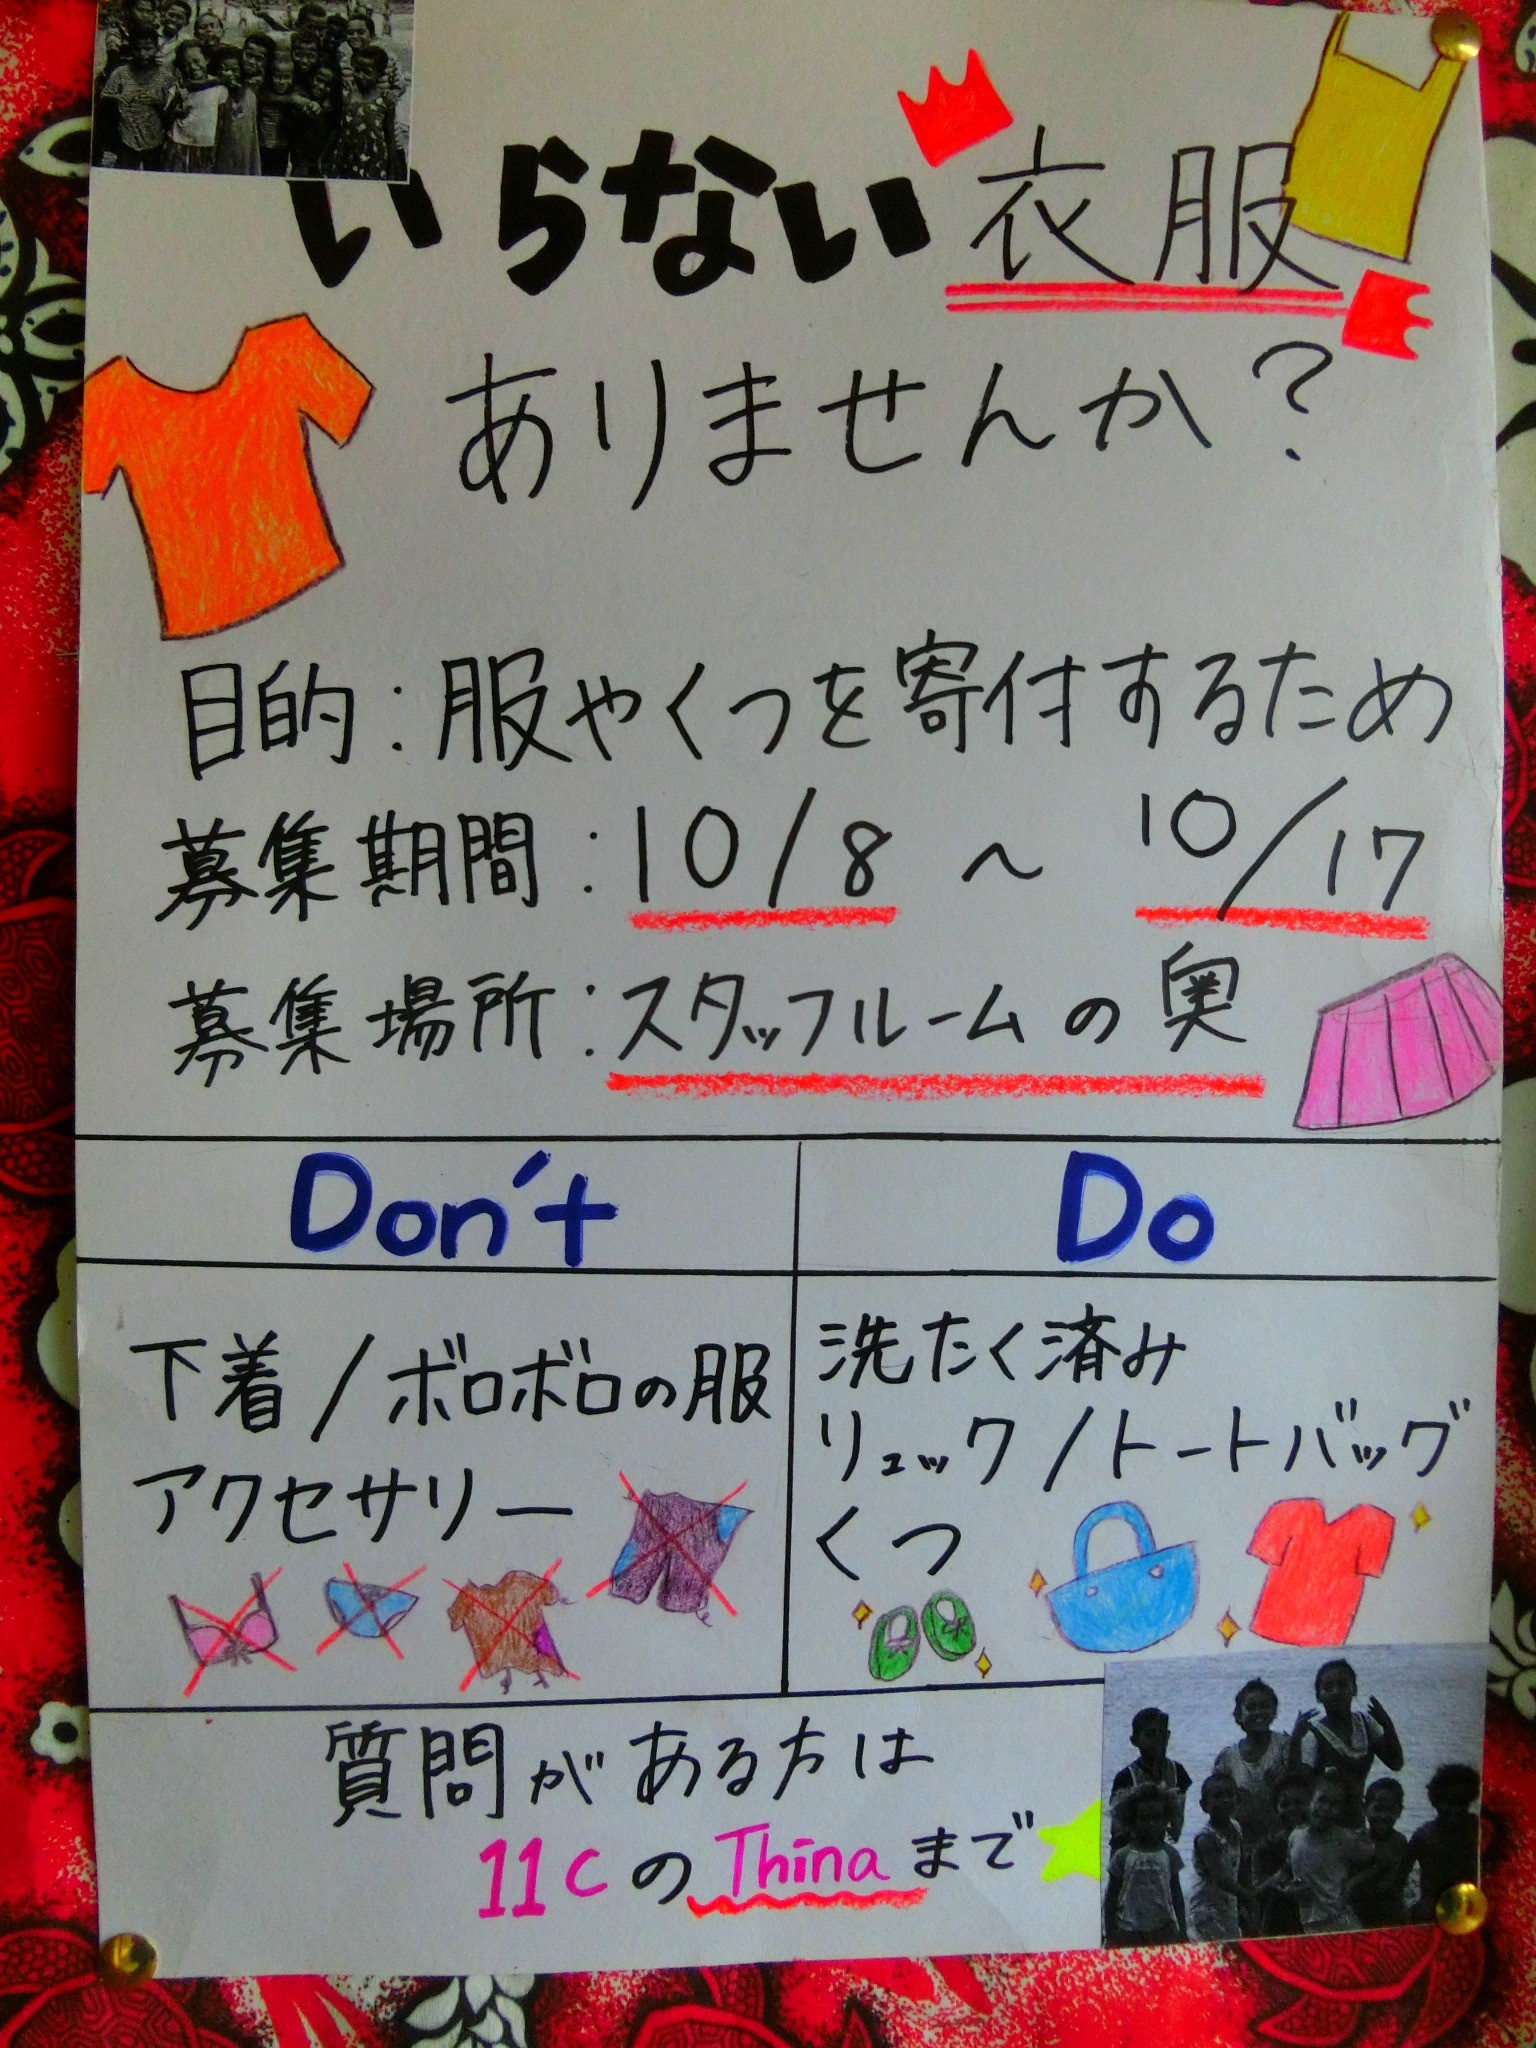 いらない衣服
ありませんか?
目的:服やくつを寄付するため
募集期間:10/8 ~ 10/17
募集場所:スタッフルームの奥
Don't
Do
下着/ボロボロの服
アクセサリー
洗たく済み
リュック/トートバッグ
くつ
質問がある方は
11cのThinaまで